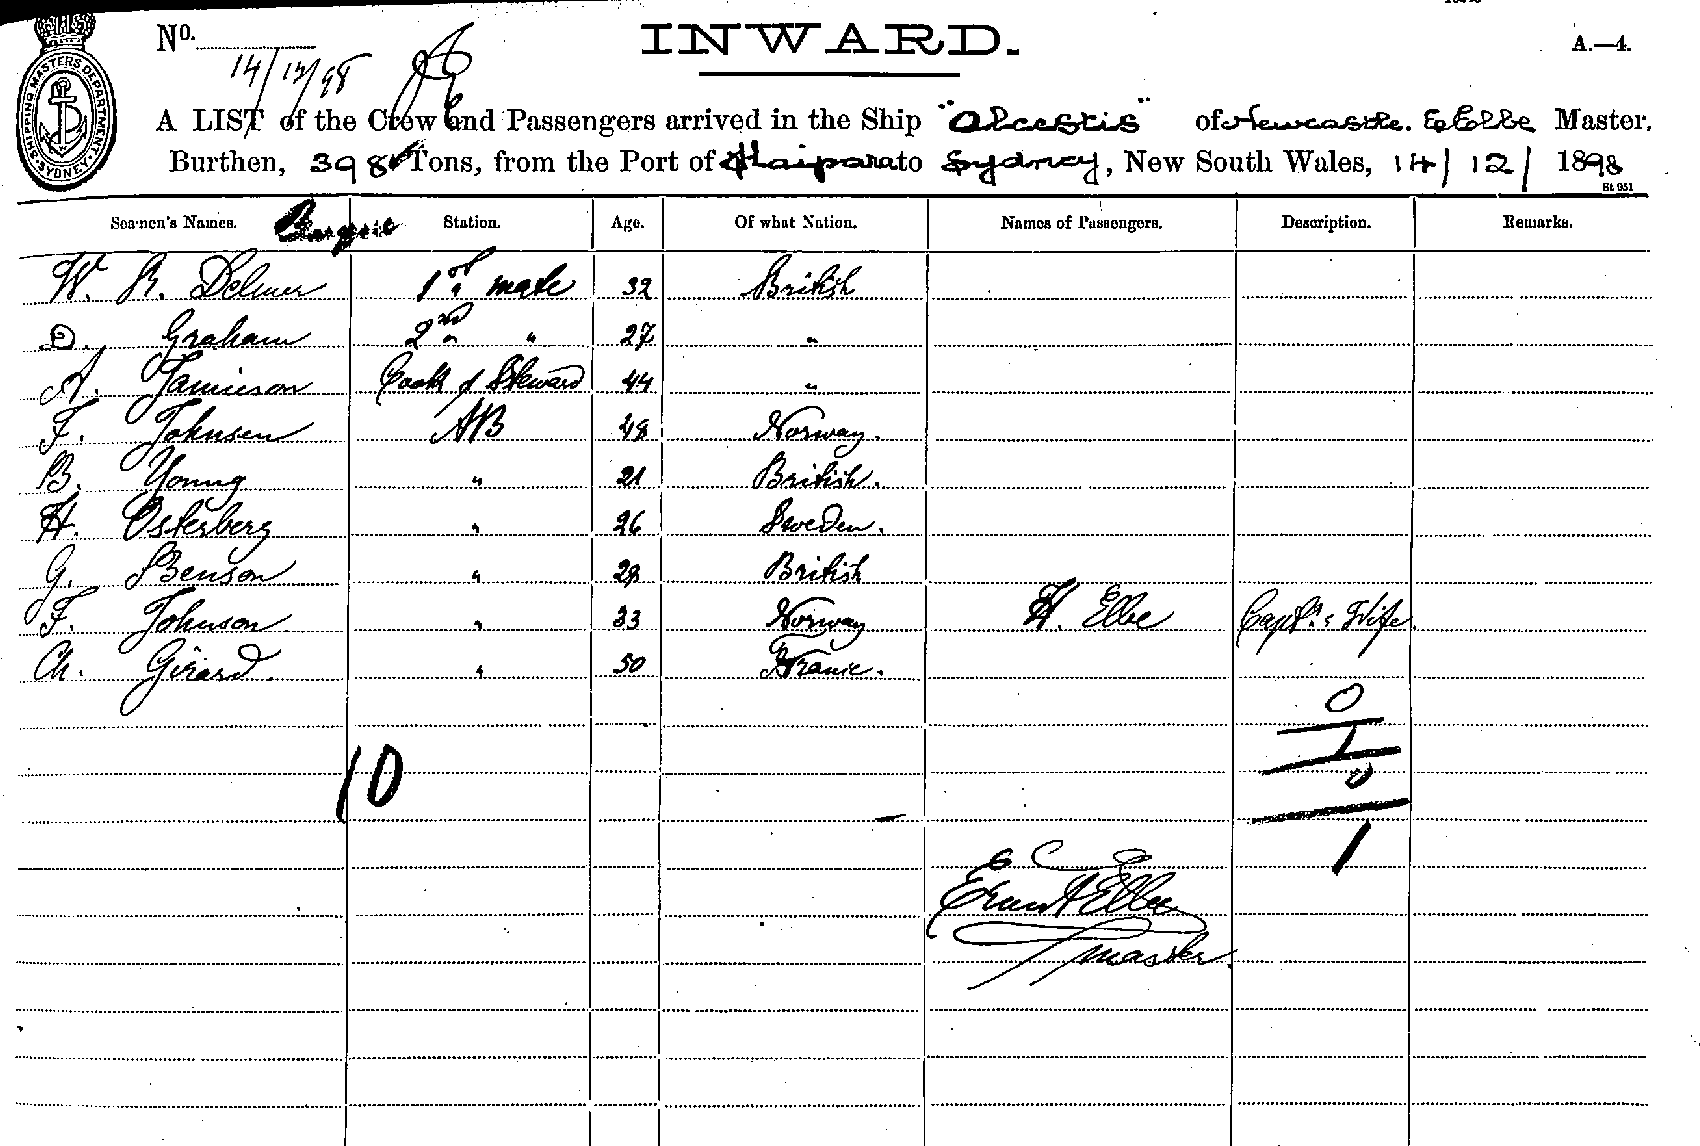 SHIPPING MASTERS DEPARTMENT. SYDNEY.
No.
14/12/98
INWARD.
A.—4.
A LIST of the Crew and Passengers arrived in the Ship "Alcestis" of Newcastle. E Elbe Master,
Burthen, 398 Tons, from the Port of Kaipara to Sydney, New South Wales, 14/12/1898
St 951
Seamen's Names. Station. Age. Of what Nation. Names of Passengers. Description. Remarks.
W. R. Delmer 1st mate 32 British
D. Graham 2nd " 27 "
A. Jamieson Cook & Steward 44 "
F. Johnsen AB 48 Norway.
B. Young " 21 British.
H. Osterberg " 26 Sweden.
G. Benson " 28 British
F. Johnson " 33 Norway H. Elbe Capt's Wife
Ch. Girard. " 50 France.
0
1
10 0
1
Elbe
master